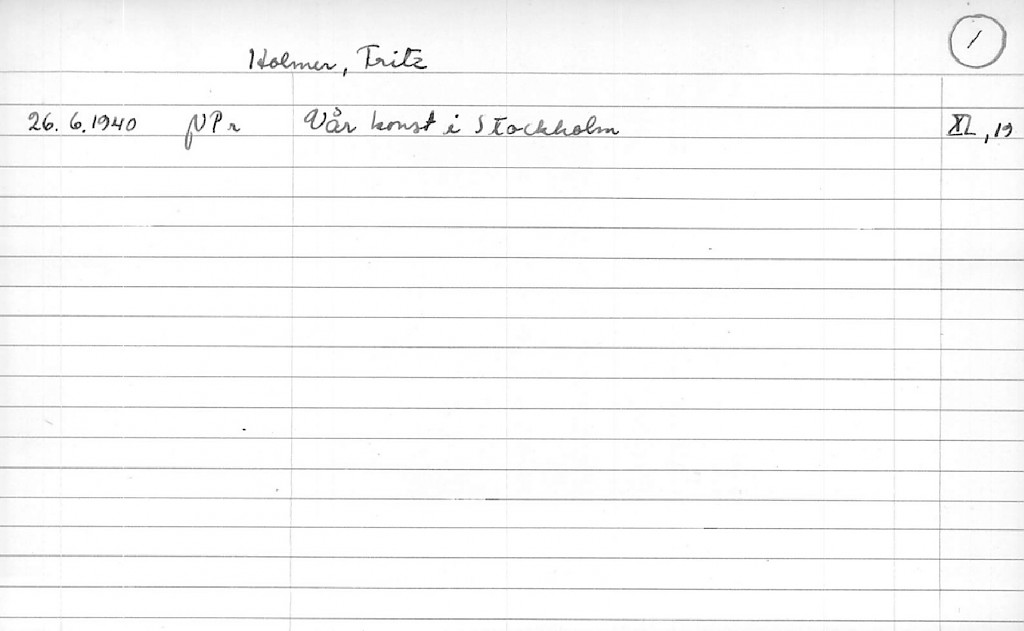 1
Holmer, Fritz
26. 6. 1940 NPr Vår konst i Stockholm XL, 19